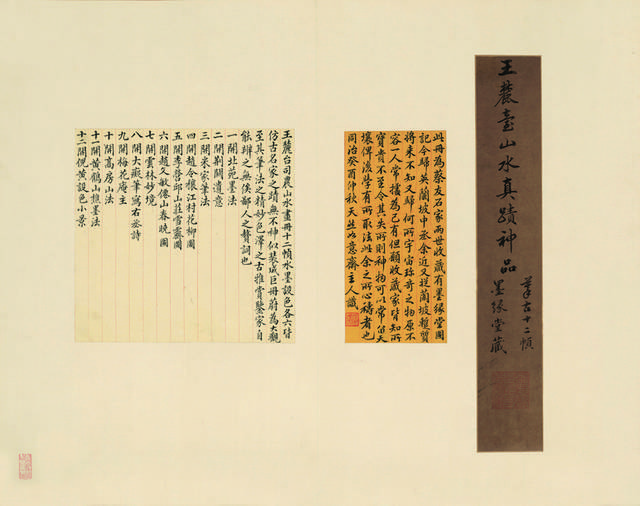 王麓臺山水真蹟神品
摹古十二幀
墨緣堂藏
此冊為蔡友石家兩世收藏有墨緣堂圖
記今歸吳蘭坡中丞余近又從蘭坡暫質
將來不知又歸何所宇宙珍奇之物原不
容一人常據為己有但願收藏家皆知所
寶貴不至令其失所則神物可以常留天
壤俾後學有所取法此余之所心禱者也
同治癸酉仲秋天然如意齋主人識
王麓台司農山水畫冊十二幀水墨設色各六皆
仿古名家之蹟無不神似裝成巨冊蔚為大觀
至其筆法之精妙色澤之古雅賞鑒家自
能辨之無俟鄙人之贊詞也
一開北苑墨法
二開荊關遺意
三開米家筆法
四開趙令穰江村花柳圖
五開李營邱山莊雪霽圖
六開趙文敏僊山春曉圖
七開雲林妙境
八開大癡筆寫右丞詩
九開梅花庵主
十開高房山法
十一開黃鶴山樵墨法
十二開倪黃設色小景